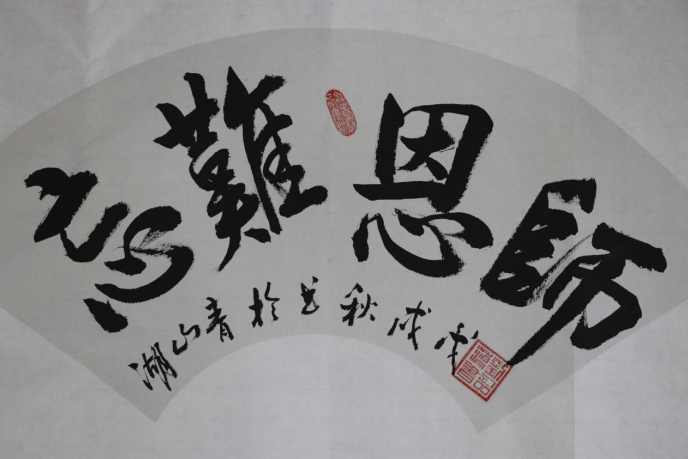 師恩難忘
戊戌秋书於青山湖